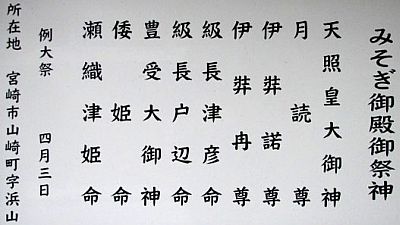 みそぎ御殿御祭神
天照皇大御神
月読尊
伊弉諾尊
伊弉冉尊
級長津彦命
級長戸辺命
豊受大御神
倭姫命
瀬織津姫命
例大祭 四月三日
所在地 宮崎市山崎町字浜山